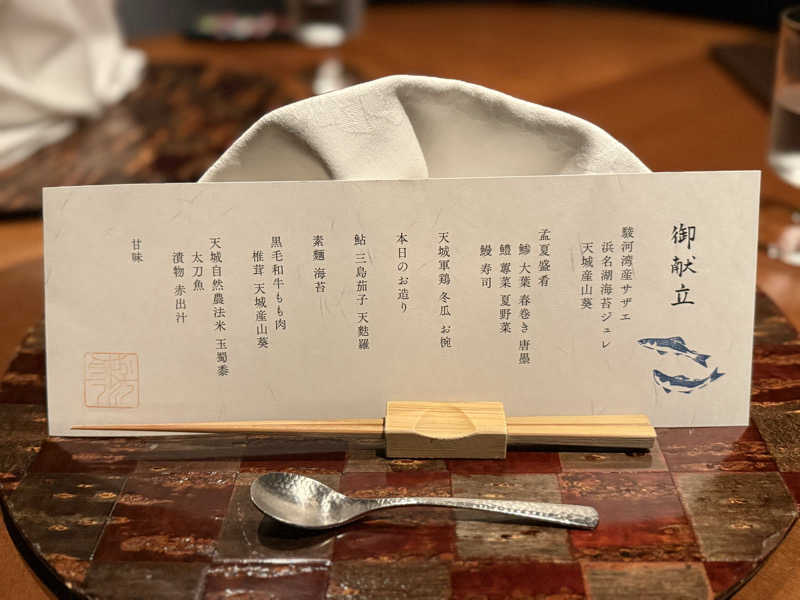 御献立
駿河湾産サザエ
浜名湖海苔ジュレ
天城産山葵
孟夏盛肴
鯵 大葉 春巻き 唐墨
鱧 蓴菜 夏野菜
鰻 寿司
天城軍鶏 冬瓜 お椀
本日のお造り
鮎 三島茄子 天麩羅
素麺 海苔
黒毛和牛もも肉
椎茸 天城産山葵
天城自然農法米 玉蜀黍
太刀魚
漬物 赤出汁
甘味